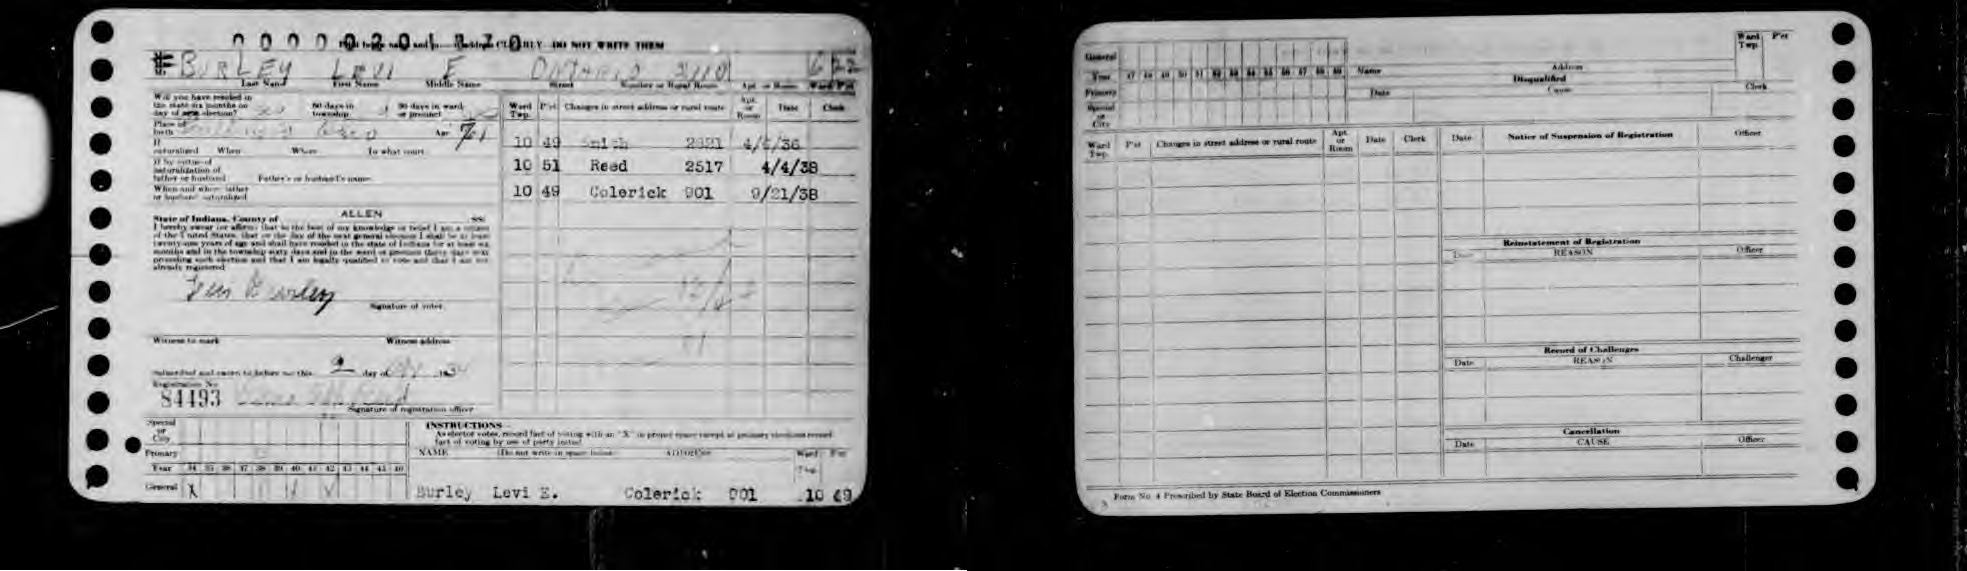 00000201370
Print below name and address CLEARLY—DO NOT WRITE THEM
BURLEY LEVI E ONTARIO 2110 6 22
Last Name First Name Middle Name Street Number or Rural Route Apt. or Room Ward P'ct
Will you have resided in
the state six months on 60 days in 30 days in ward
day of next election? township or precinct
Place of
birth Age 71
If
naturalized When Where To what court
If by virtue of
naturalization of
father or husband Father's or husband's name
When and where father
or husband naturalized
State of Indiana, County of ALLEN ss:
I hereby swear (or affirm) that to the best of my knowledge or belief I am a citizen
of the United States, that on the day of the next general election I shall be at least
twenty-one years of age and shall have resided in the state of Indiana for at least six
months and in the township sixty days and in the ward or precinct thirty days next
preceding such election and that I am legally qualified to vote and that I am not
already registered
Levi Burley
Signature of voter
Witness to mark Witness address
Subscribed and sworn to before me this 2 day of 1934
Registration No.
84493
Signature of registration officer
Ward Twp. P'ct Changes in street address or rural route Apt. or Room Date Clerk
10 49 Smith 2821 4/6/36
10 51 Reed 2517 4/4/38
10 49 Colerick 901 9/21/38
Special
or
City
Primary
Year 34 35 36 37 38 39 40 41 42 43 44 45 46
General X
INSTRUCTIONS—
As elector votes, record fact of voting with an "X" in proper space except at primary elections record
fact of voting by use of party initial
NAME (Do not write in space below) ADDRESS Ward Twp. P'ct
Burley Levi E. Colerick 901 10 49
General
Year 47 48 49 50 51 52 53 54 55 56 57 58 59
Primary
Special
or
City
Name Address Ward Twp. P'ct
Disqualified
Date Cause Clerk
Ward Twp. P'ct Changes in street address or rural route Apt. or Room Date Clerk
Date Notice of Suspension of Registration Officer
Reinstatement of Registration
Date REASON Officer
Record of Challenges
Date REASON Challenger
Cancellation
Date CAUSE Officer
Form No. 4 Prescribed by State Board of Election Commissioners